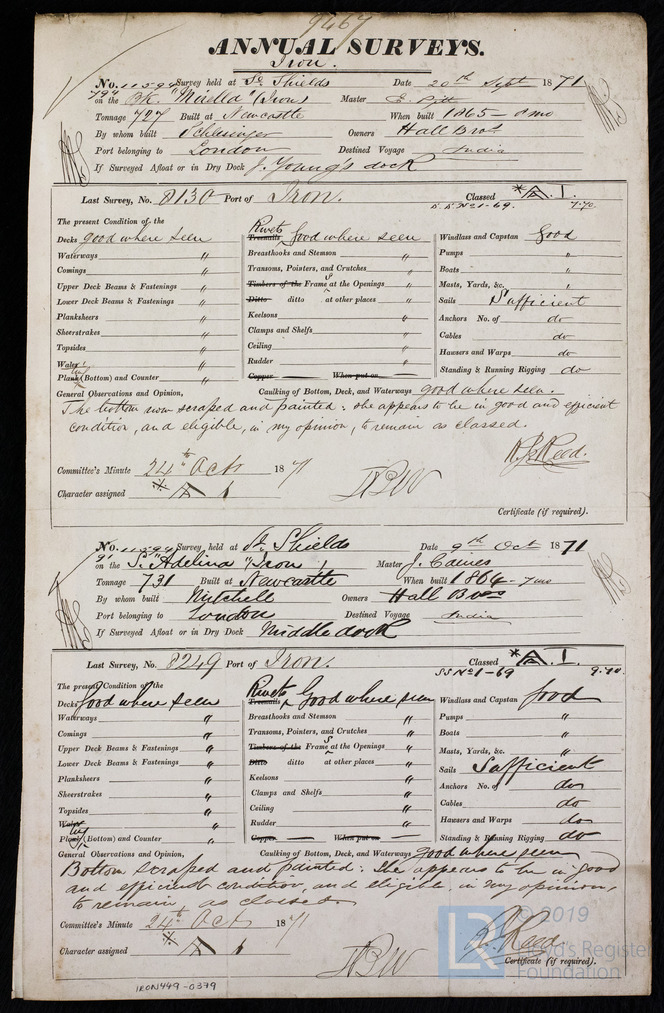 9467
ANNUAL SURVEYS.
Iron.
No. 11594 Survey held at So Shields Date 20th Sept 1871
794 on the Bk. "Mirella" (Iron) Master E. Pitt
Tonnage 727 Built at Newcastle When built 1865 - 8mo
By whom built Schlesinger Owners Hall Bros
Port belonging to London Destined Voyage India
If Surveyed Afloat or in Dry Dock J. Young's dock
Last Survey, No. 8130 Port of Iron. Classed *A.1.
S.S. No 1-69. 7.70
The present Condition of the
Decks good where seen
Waterways "
Comings "
Upper Deck Beams & Fastenings "
Lower Deck Beams & Fastenings "
Planksheers "
Sheerstrakes "
Topsides "
Wales "
Plank (Bottom) and Counter "
Rivets
Treenails Good where seen
Breasthooks and Stemson "
Transoms, Pointers, and Crutches "
Timbers of the Frames at the Openings "
Ditto ditto at other places "
Keelsons "
Clamps and Shelfs "
Ceiling "
Rudder "
Copper When put on
Windlass and Capstan Good
Pumps "
Boats "
Masts, Yards, &c. "
Sails Sufficient
Anchors No. of do
Cables do
Hawsers and Warps do
Standing & Running Rigging do
General Observations and Opinion, Caulking of Bottom, Deck, and Waterways good where seen.
The bottom now scraped and painted: she appears to be in good and efficient
condition, and eligible, in my opinion, to remain as classed.
R. J. Reed.
Committee's Minute 24th Oct 1871
Character assigned *A 1
Certificate (if required).
No. 11594 Survey held at So. Shields Date 9th Oct 1871
on the S. "Adelina" Iron Master J. Caines
Tonnage 731 Built at Newcastle When built 1864 - 7mo
By whom built Mitchell Owners Hall Bros
Port belonging to London Destined Voyage India
If Surveyed Afloat or in Dry Dock Middle dock
Last Survey, No. 8249 Port of Iron. Classed *A.1.
SS No 1-69 9.70
The present Condition of the
Decks Good where seen
Waterways "
Comings "
Upper Deck Beams & Fastenings "
Lower Deck Beams & Fastenings "
Planksheers "
Sheerstrakes "
Topsides "
Wales "
Plank (Bottom) and Counter "
Rivets
Treenails Good where seen
Breasthooks and Stemson "
Transoms, Pointers, and Crutches "
Timbers of the Frames at the Openings "
Ditto ditto at other places "
Keelsons "
Clamps and Shelfs "
Ceiling "
Rudder "
Copper When put on
Windlass and Capstan Good
Pumps "
Boats "
Masts, Yards, &c. "
Sails Sufficient
Anchors No. of do
Cables do
Hawsers and Warps do
Standing & Running Rigging do
General Observations and Opinion, Caulking of Bottom, Deck, and Waterways good where seen
Bottom scraped and painted: She appears to be in good
and efficient condition, and eligible, in my opinion,
to remain as classed.
Committee's Minute 24th Oct 1871
R. Reed
Character assigned *A 1
Certificate (if required).
IRON449-0379
LR
© 2019
Lloyd's Register
Foundation